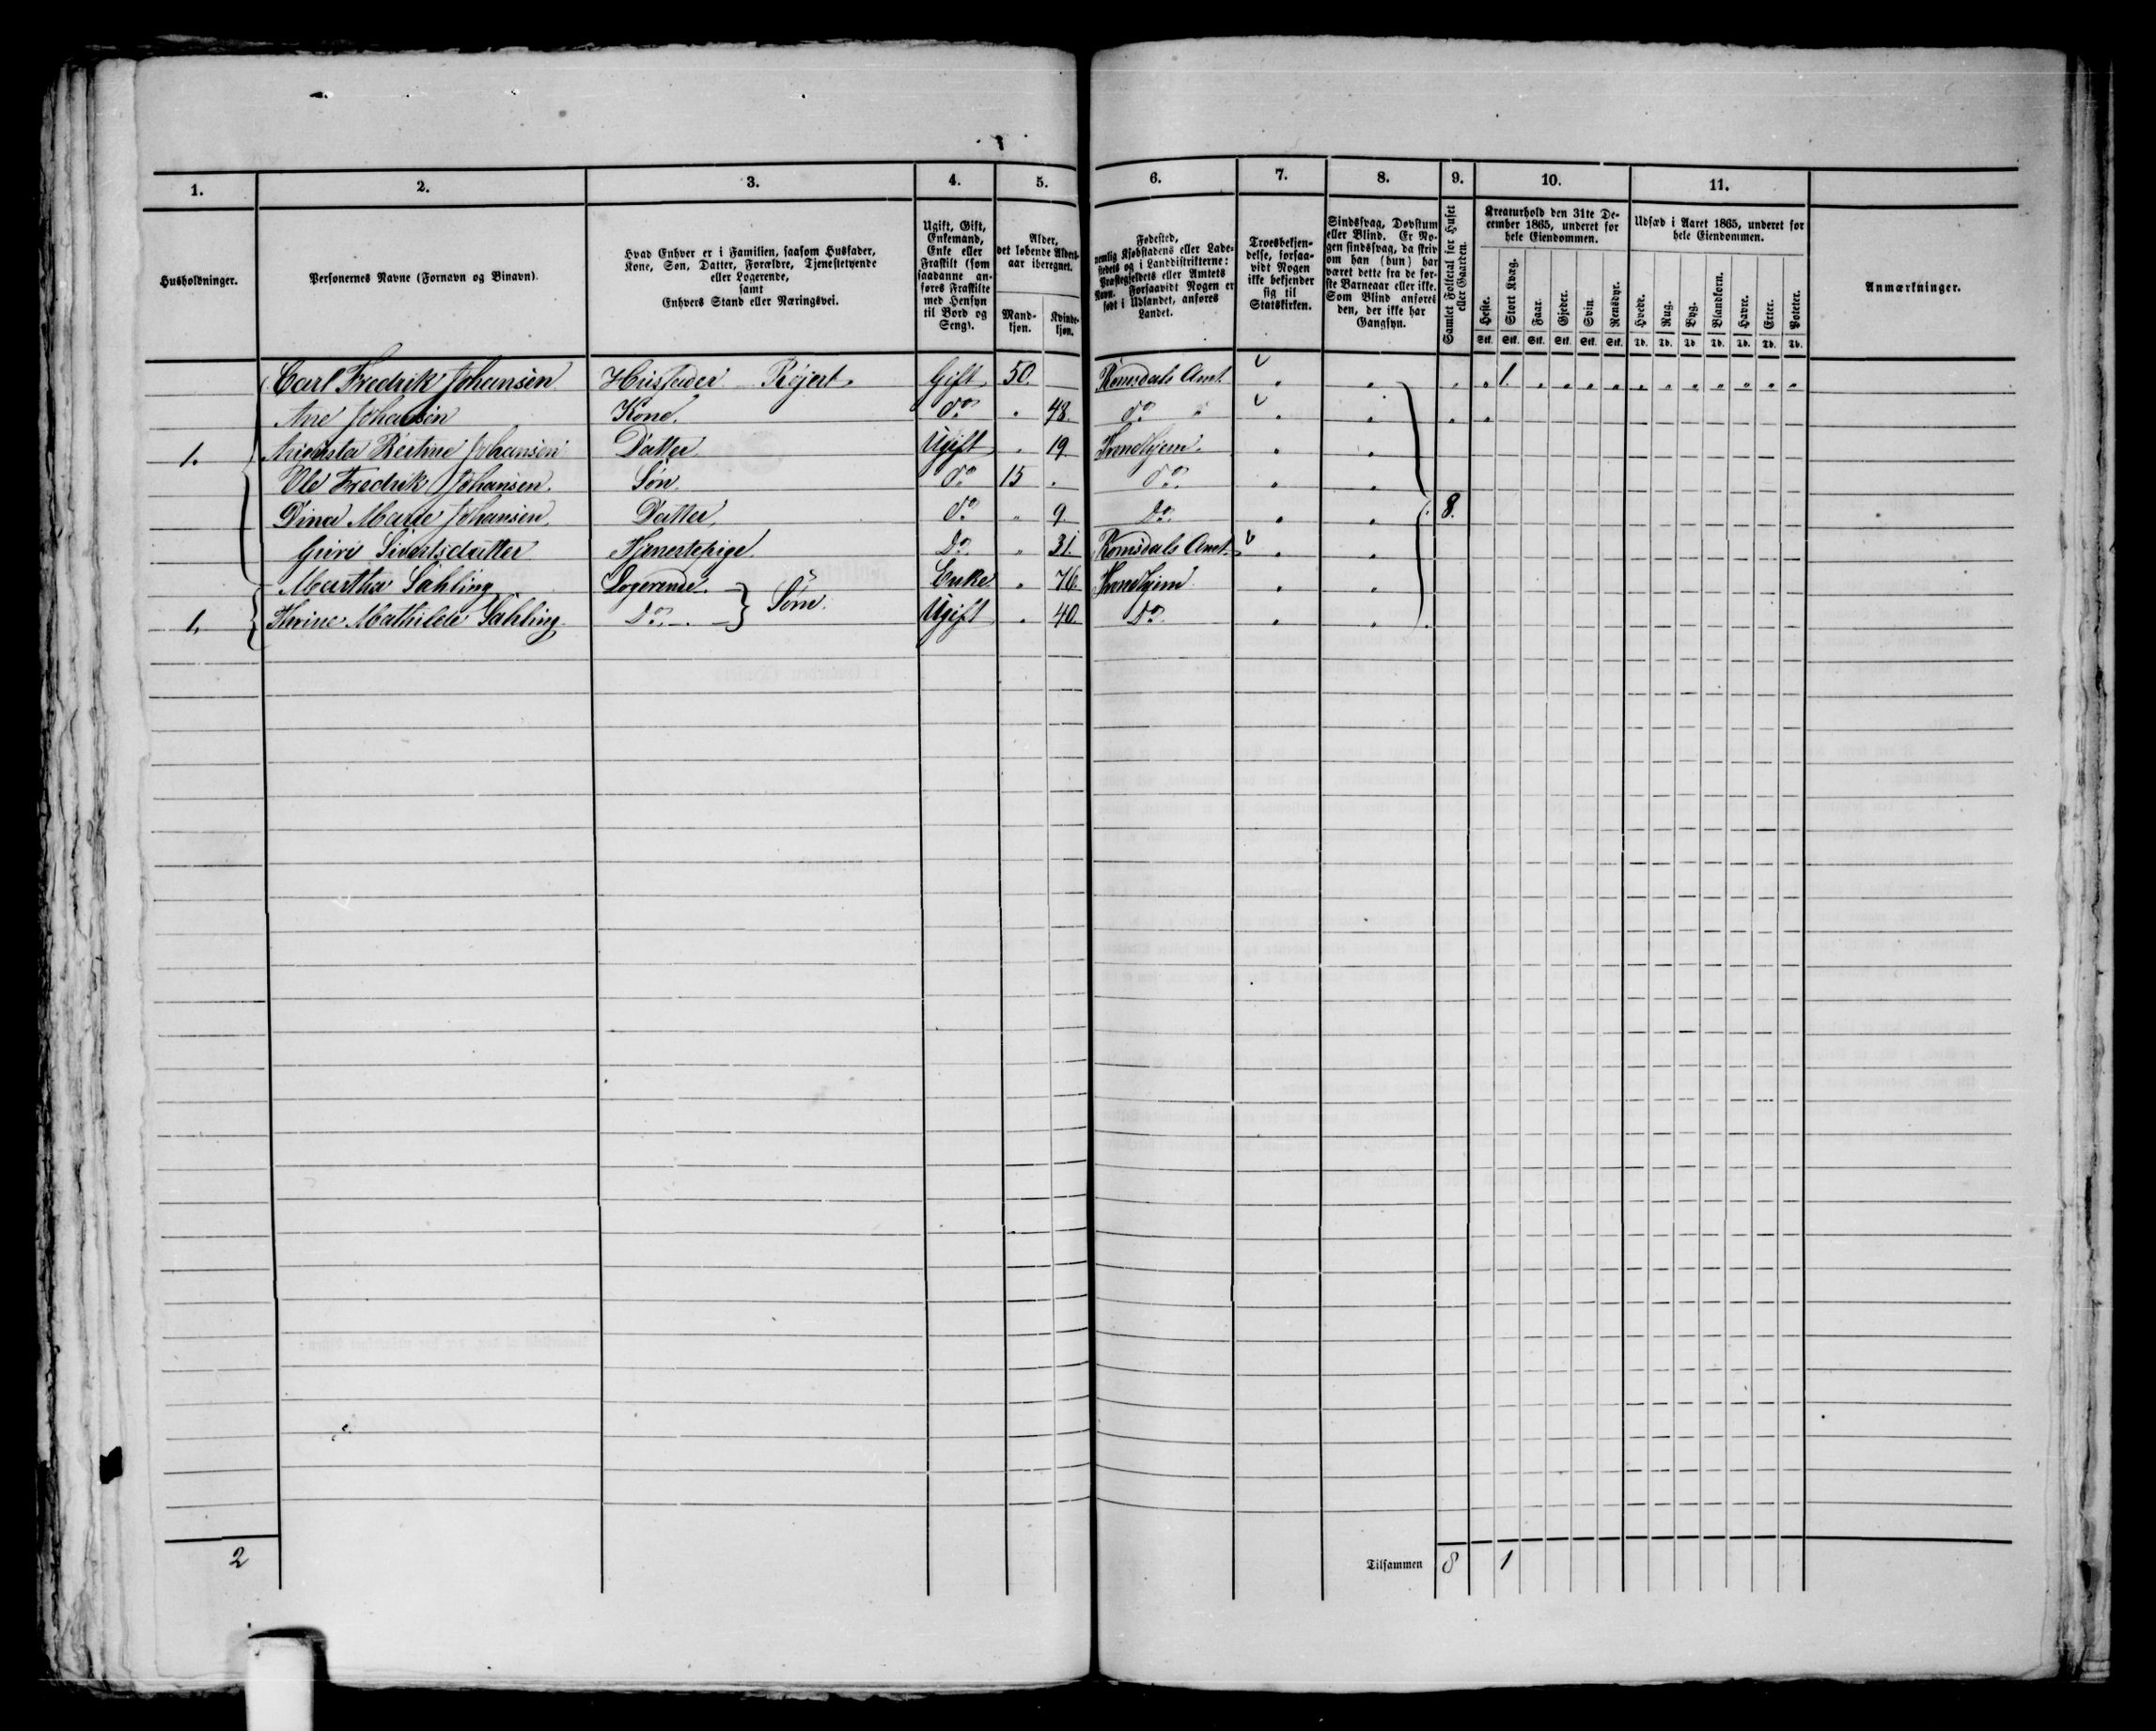 1. 2. 3. 4. 5. 6. 7. 8. 9. 10. 11.
Husholdninger.
Personernes Navne (Fornavn og Binavn).
Hvad Enhver er i Familien, saasom Husfader,
Kone, Søn, Datter, Forældre, Tjenestetyende
eller Logerende,
samt
Enhvers Stand eller Næringsvei.
Ugift, Gift,
Enkemand,
Enke eller
Fraskilt (som
saadanne an-
føres Fraskilte
med Hensyn
til Bord og
Seng).
Alder,
det løbende Alders-
aar iberegnet.
Mand-
kjøn.
Kvinde-
kjøn.
Fødested,
nemlig Kjøbstadens eller Lade-
stedets og i Landdistrikterne:
Præstegjeldets eller Amtets
Navn. Forsaavidt Nogen er
født i Udlandet, anføres
Landet.
Troesbekjen-
delse, forsaa-
vidt Nogen
ikke bekjender
sig til
Statskirken.
Sindssvag, Døvstum
eller Blind. Er No-
gen sindssvag, da skriv
om han (hun) har
været dette fra de før-
ste Barneaar eller ikke.
Som Blind anføres
den, der ikke har
Gangsyn.
Samlet Folketal for Huset
eller Gaarden.
Kreaturhold den 31te De-
cember 1865, underet for
hele Eiendommen.
Heste. Stort Kvæg. Faar. Gjeder. Svin. Rensdyr.
Stk. Stk. Stk. Stk. Stk. Stk.
Udsæd i Aaret 1865, underet for
hele Eiendommen.
Hvede. Rug. Byg. Blandkorn. Havre. Erter. Poteter.
Td. Td. Td. Td. Td. Td. Td.
Anmærkninger.
Carl Fredrik Johansen Husfader Gift 50. Romsdals Amt. " " " " 1. " " " " " " " " " " "
Ane Johansen Kone. do " 48. do " " " " "
1. Johansen Datter Ugift " 19 Trondhjem. " "
Ole Fredrik Johansen. Søn. do 15 " do. " "
Dina Marie Johansen. Datter, do " 9. Do. " " 8.
Guri Sivertsdatter Tjenestepige Do. " 31. Romsdals Amt. " "
Martha Sahling Logerende. Enke " 76 Trondhjem " "
1. Mathilde Sahling. Do. Ugift " 40 Do. " "
2 Tilsammen 8 1